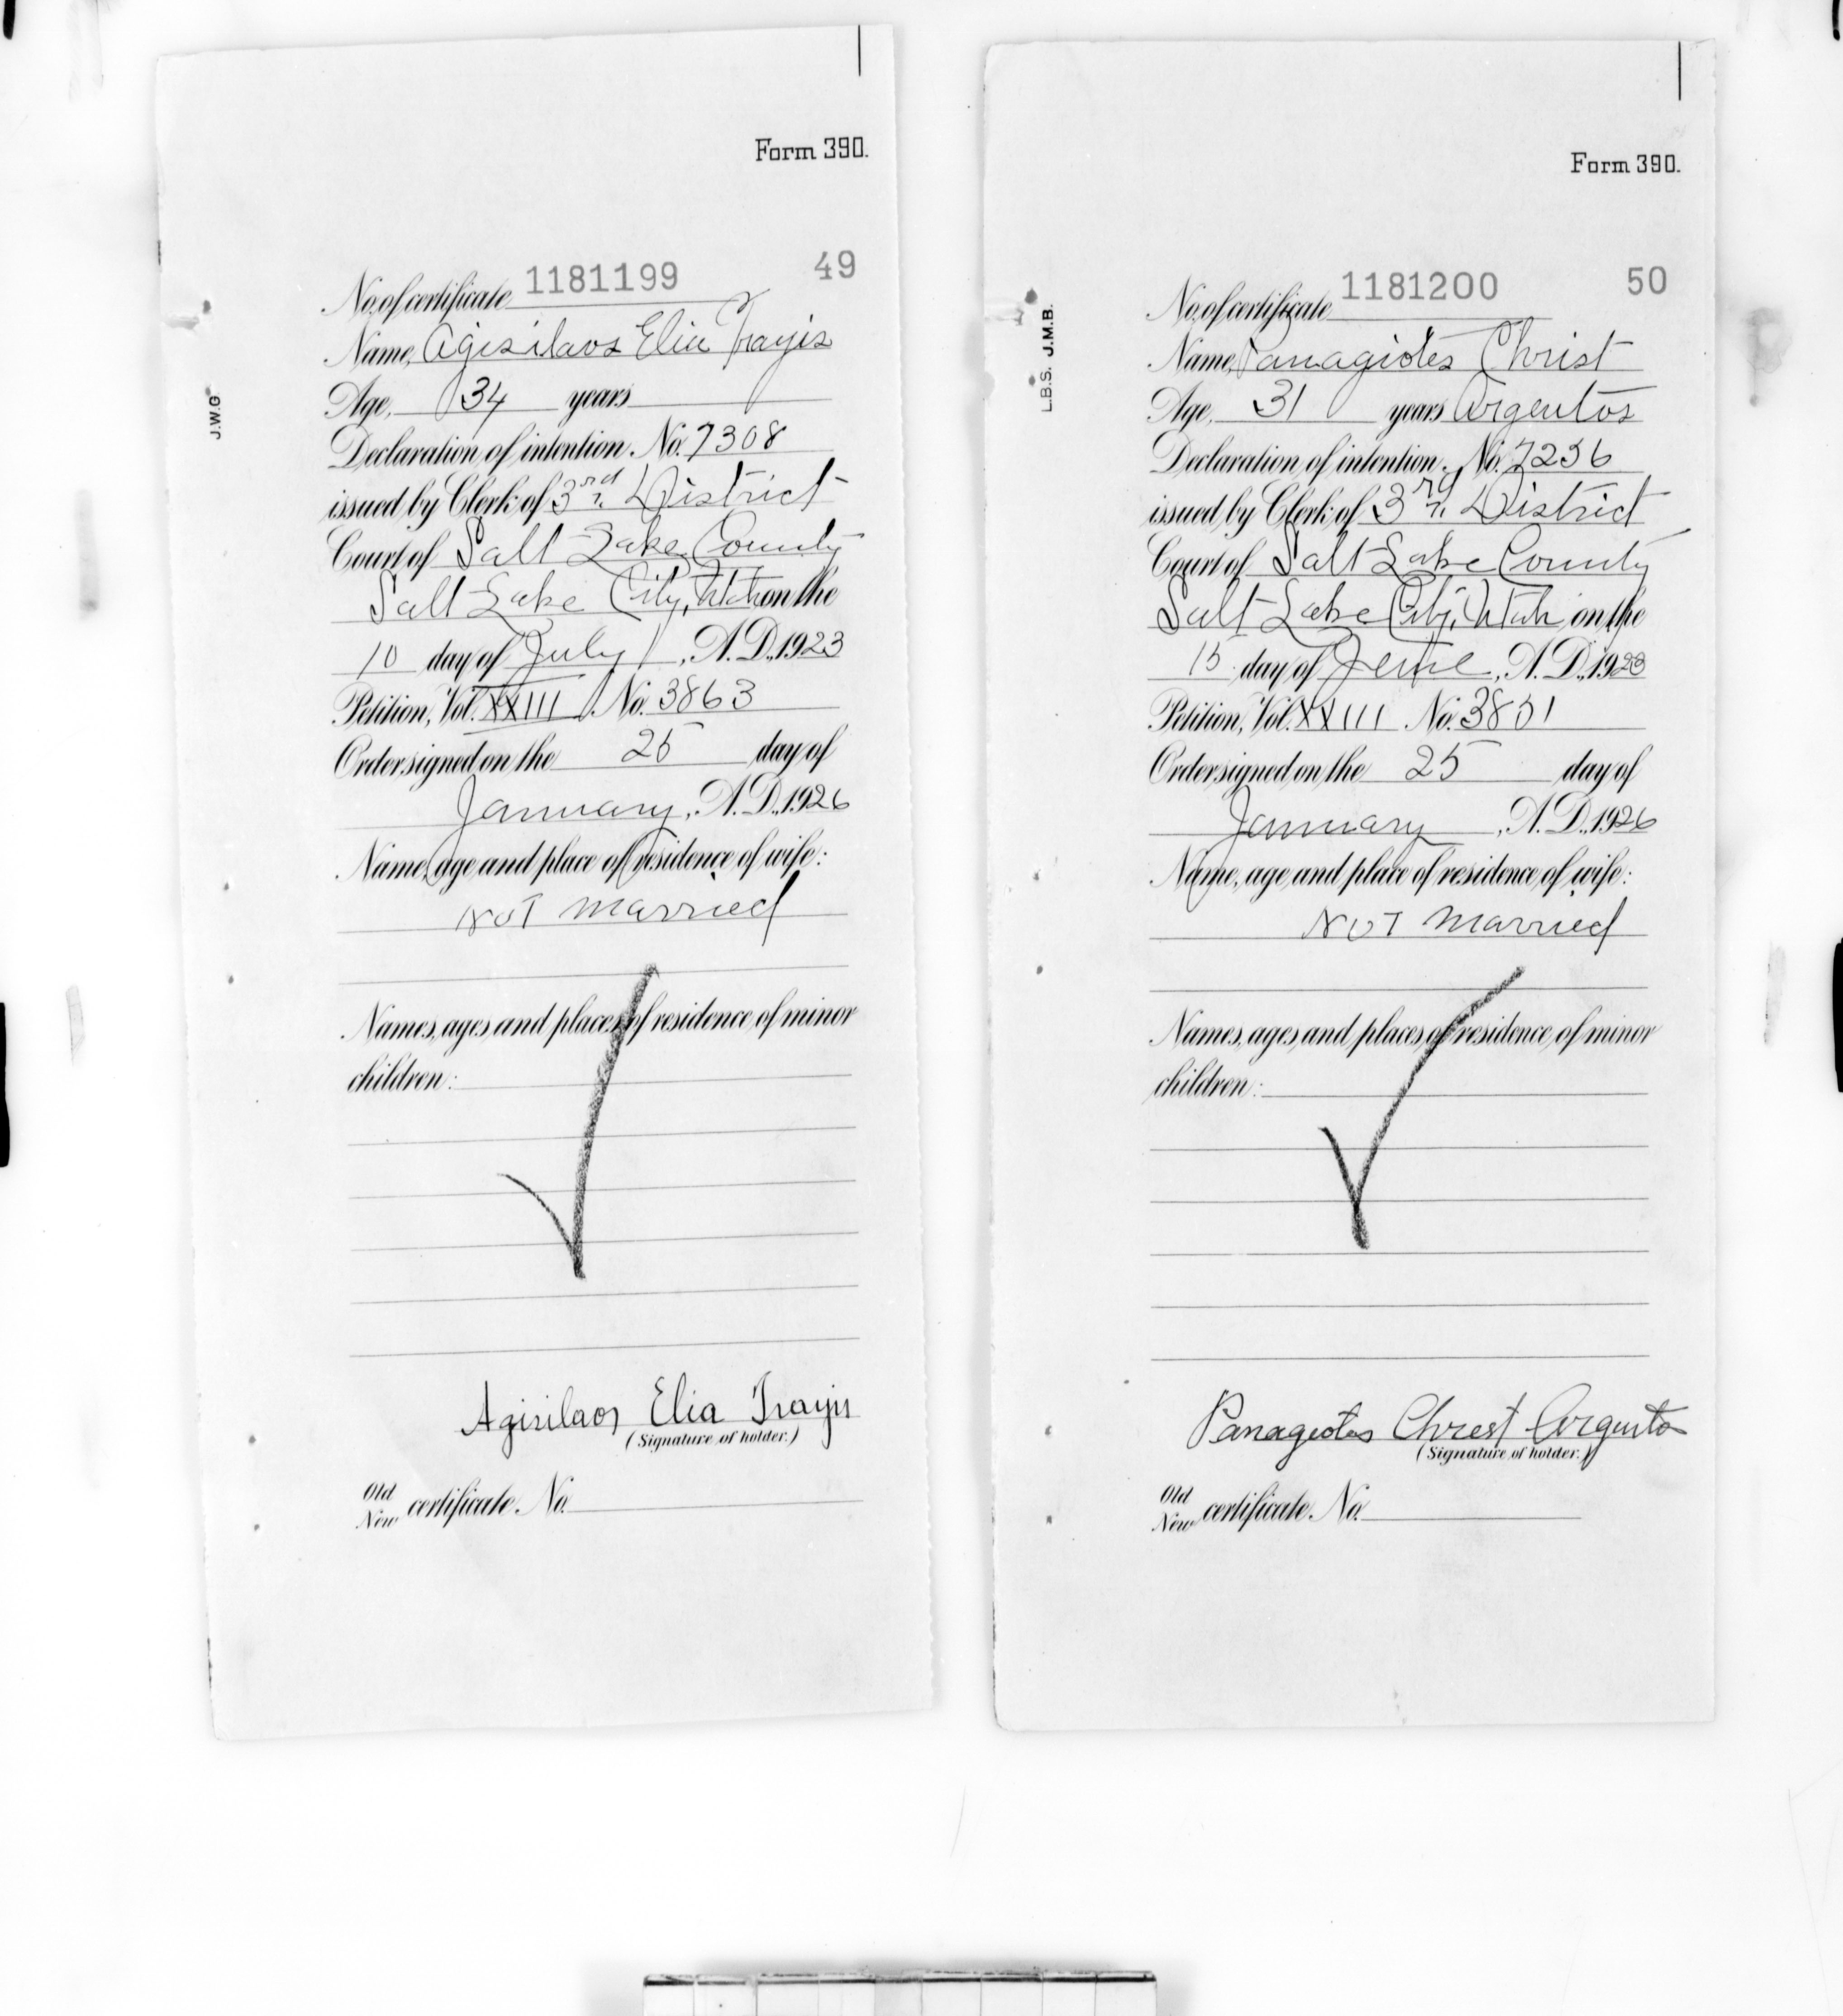 Form 390.
49
No. of certificate 1181199
Name, Agisilaos Elia Trayis
Age, 34 years
Declaration of intention, No. 7308
issued by Clerk of 3rd District
Court of Salt Lake County
Salt Lake City, Utah on the
10 day of July, A.D., 1923
Petition, Vol. XXIII No. 3863
Order signed on the 25 day of
January, A.D., 1926
Name, age and place of residence of wife:
NOT married
Names, ages and places of residence of minor
children:
Agisilaos Elia Trayis
(Signature of holder.)
Old
New certificate No.
J.W.G
Form 390.
50
No. of certificate 1181200
Name, Panagiotes Christ
Age, 31 years Argentos
Declaration of intention, No. 7236
issued by Clerk of 3rd District
Court of Salt Lake County
Salt Lake City, Utah on the
15 day of June, A.D., 1923
Petition, Vol. XXIII No. 3851
Order signed on the 25 day of
January, A.D., 1926
Name, age and place of residence of wife:
NOT married
Names, ages and places of residence of minor
children:
Panagiotes Chrest Argentos
(Signature of holder.)
Old
New certificate No.
L.B.S. J.M.B.